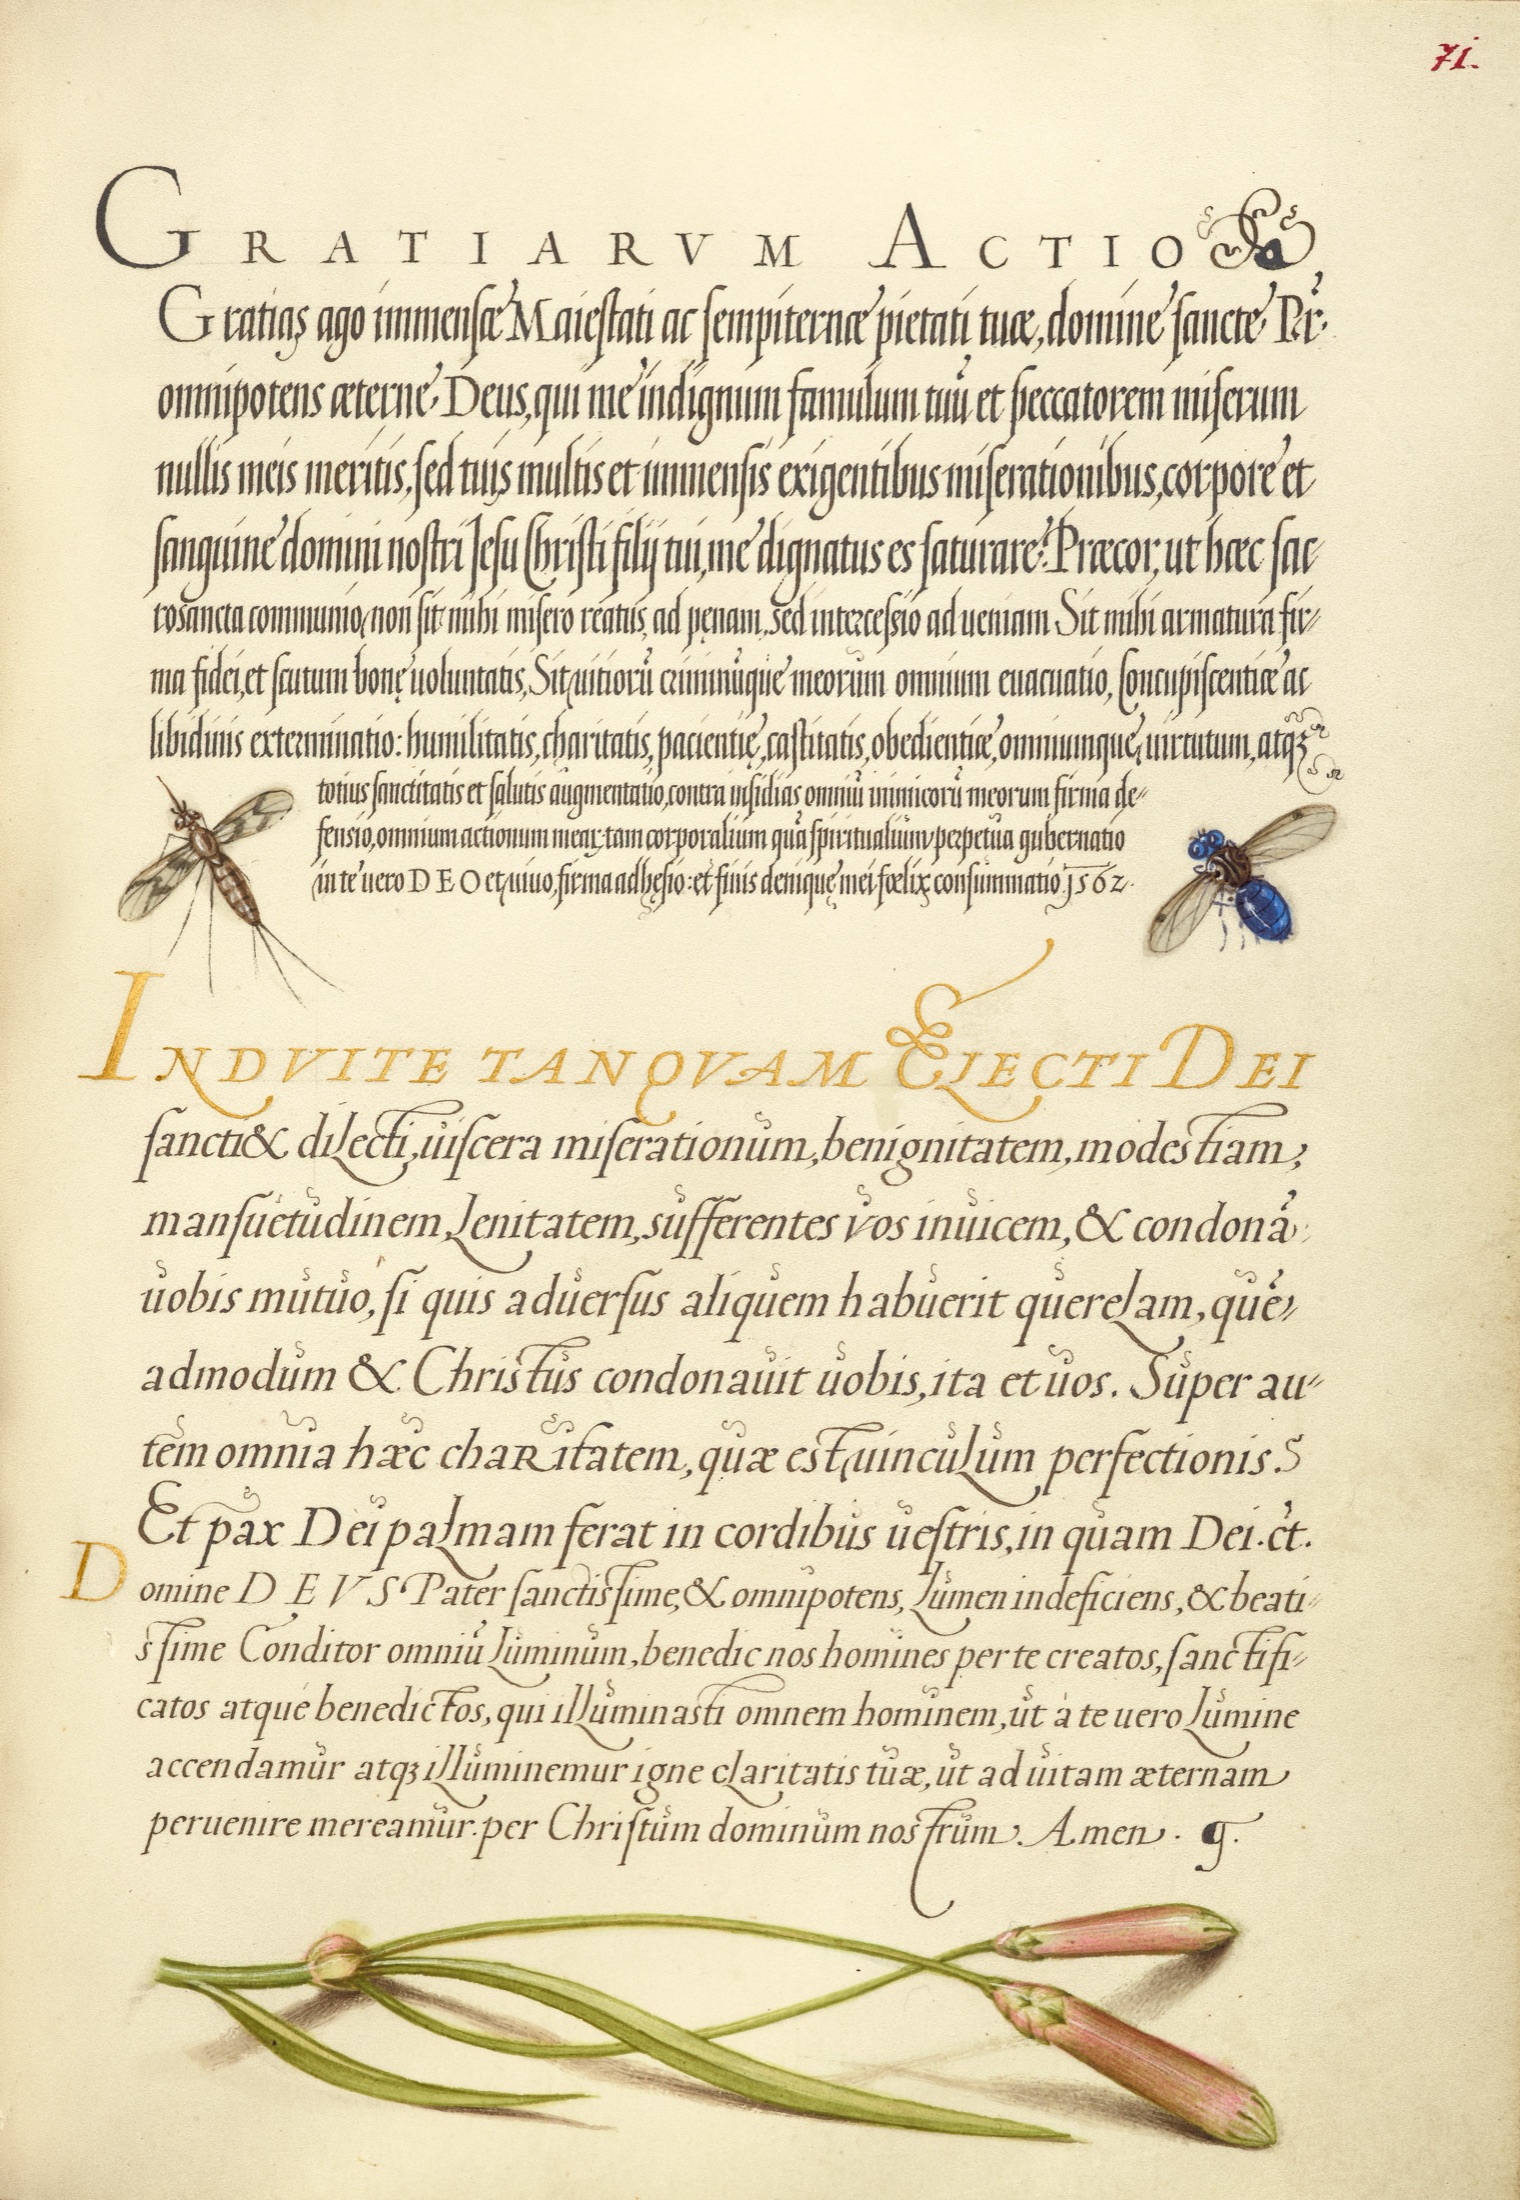 71.
GRATIARVM ACTIO
Gratias ago immensæ Maiestati ac sempiternæ pietati tuæ, domine sancte Pr̃.
omnipotens æterne Deus, qui me indignum famulum tuũ et peccatorem miserum
nullis meis meritis, sed tuis multis et immensis exigentibus miserationibus, corpore et
sanguine domini nostri Jesu Christi filij tui, me dignatus es saturare: Præcor, ut hæc sac
rosancta communio, non sit mihi misero reatus ad pęnam, sed intercessio ad ueniam Sit mihi armatura fir-
ma fidei, et scutum bonę uoluntatis, Sit uitiorũ criminũque meorum omnium euacuatio, Concupiscentiæ ac
libidinis exterminatio: humilitatis, charitatis, pacientię, castitatis, obedientiæ, omniumque uirtutum, atqꝫ
totius sanctitatis et salutis augmentatio, contra insidias omniũ inimicorũ meorum firma de-
fensio, omnium actionum mearꝝ tam corporalium quã spiritualium perpetua gubernatio
in te uero DEO et uiuo, firma adhęsio: et finis denique mei fœlix consummatio 1562.
INDVITE TANQVAM ELECTI DEI
sancti & dilecti, uiscera miserationum, benignitatem, modestiam,
mansuetudinem, lenitatem, sufferentes vos inuicem, & condonã
uobis mutuo, si quis aduersus aliquem habuerit querelam, quẽ-
admodum & Christus condonauit uobis, ita et uos. Super au-
tem omnia hæc chaRitatem, quæ est uinculum perfectionis.
Et pax Dei palmam ferat in cordibus uestris, in quam Dei. ct.
Domine DEVS Pater sanctissime, & omnipotens, lumen indeficiens, & beati-
ssime Conditor omniũ luminum, benedic nos homines per te creatos, sanctifi-
catos atque benedictos, qui illuminasti omnem hominem, ut à te uero lumine
accendamur atqꝫ illuminemur igne claritatis tuæ, ut ad uitam æternam
peruenire mereamur. per Christum dominum nostrum. Amen. g.